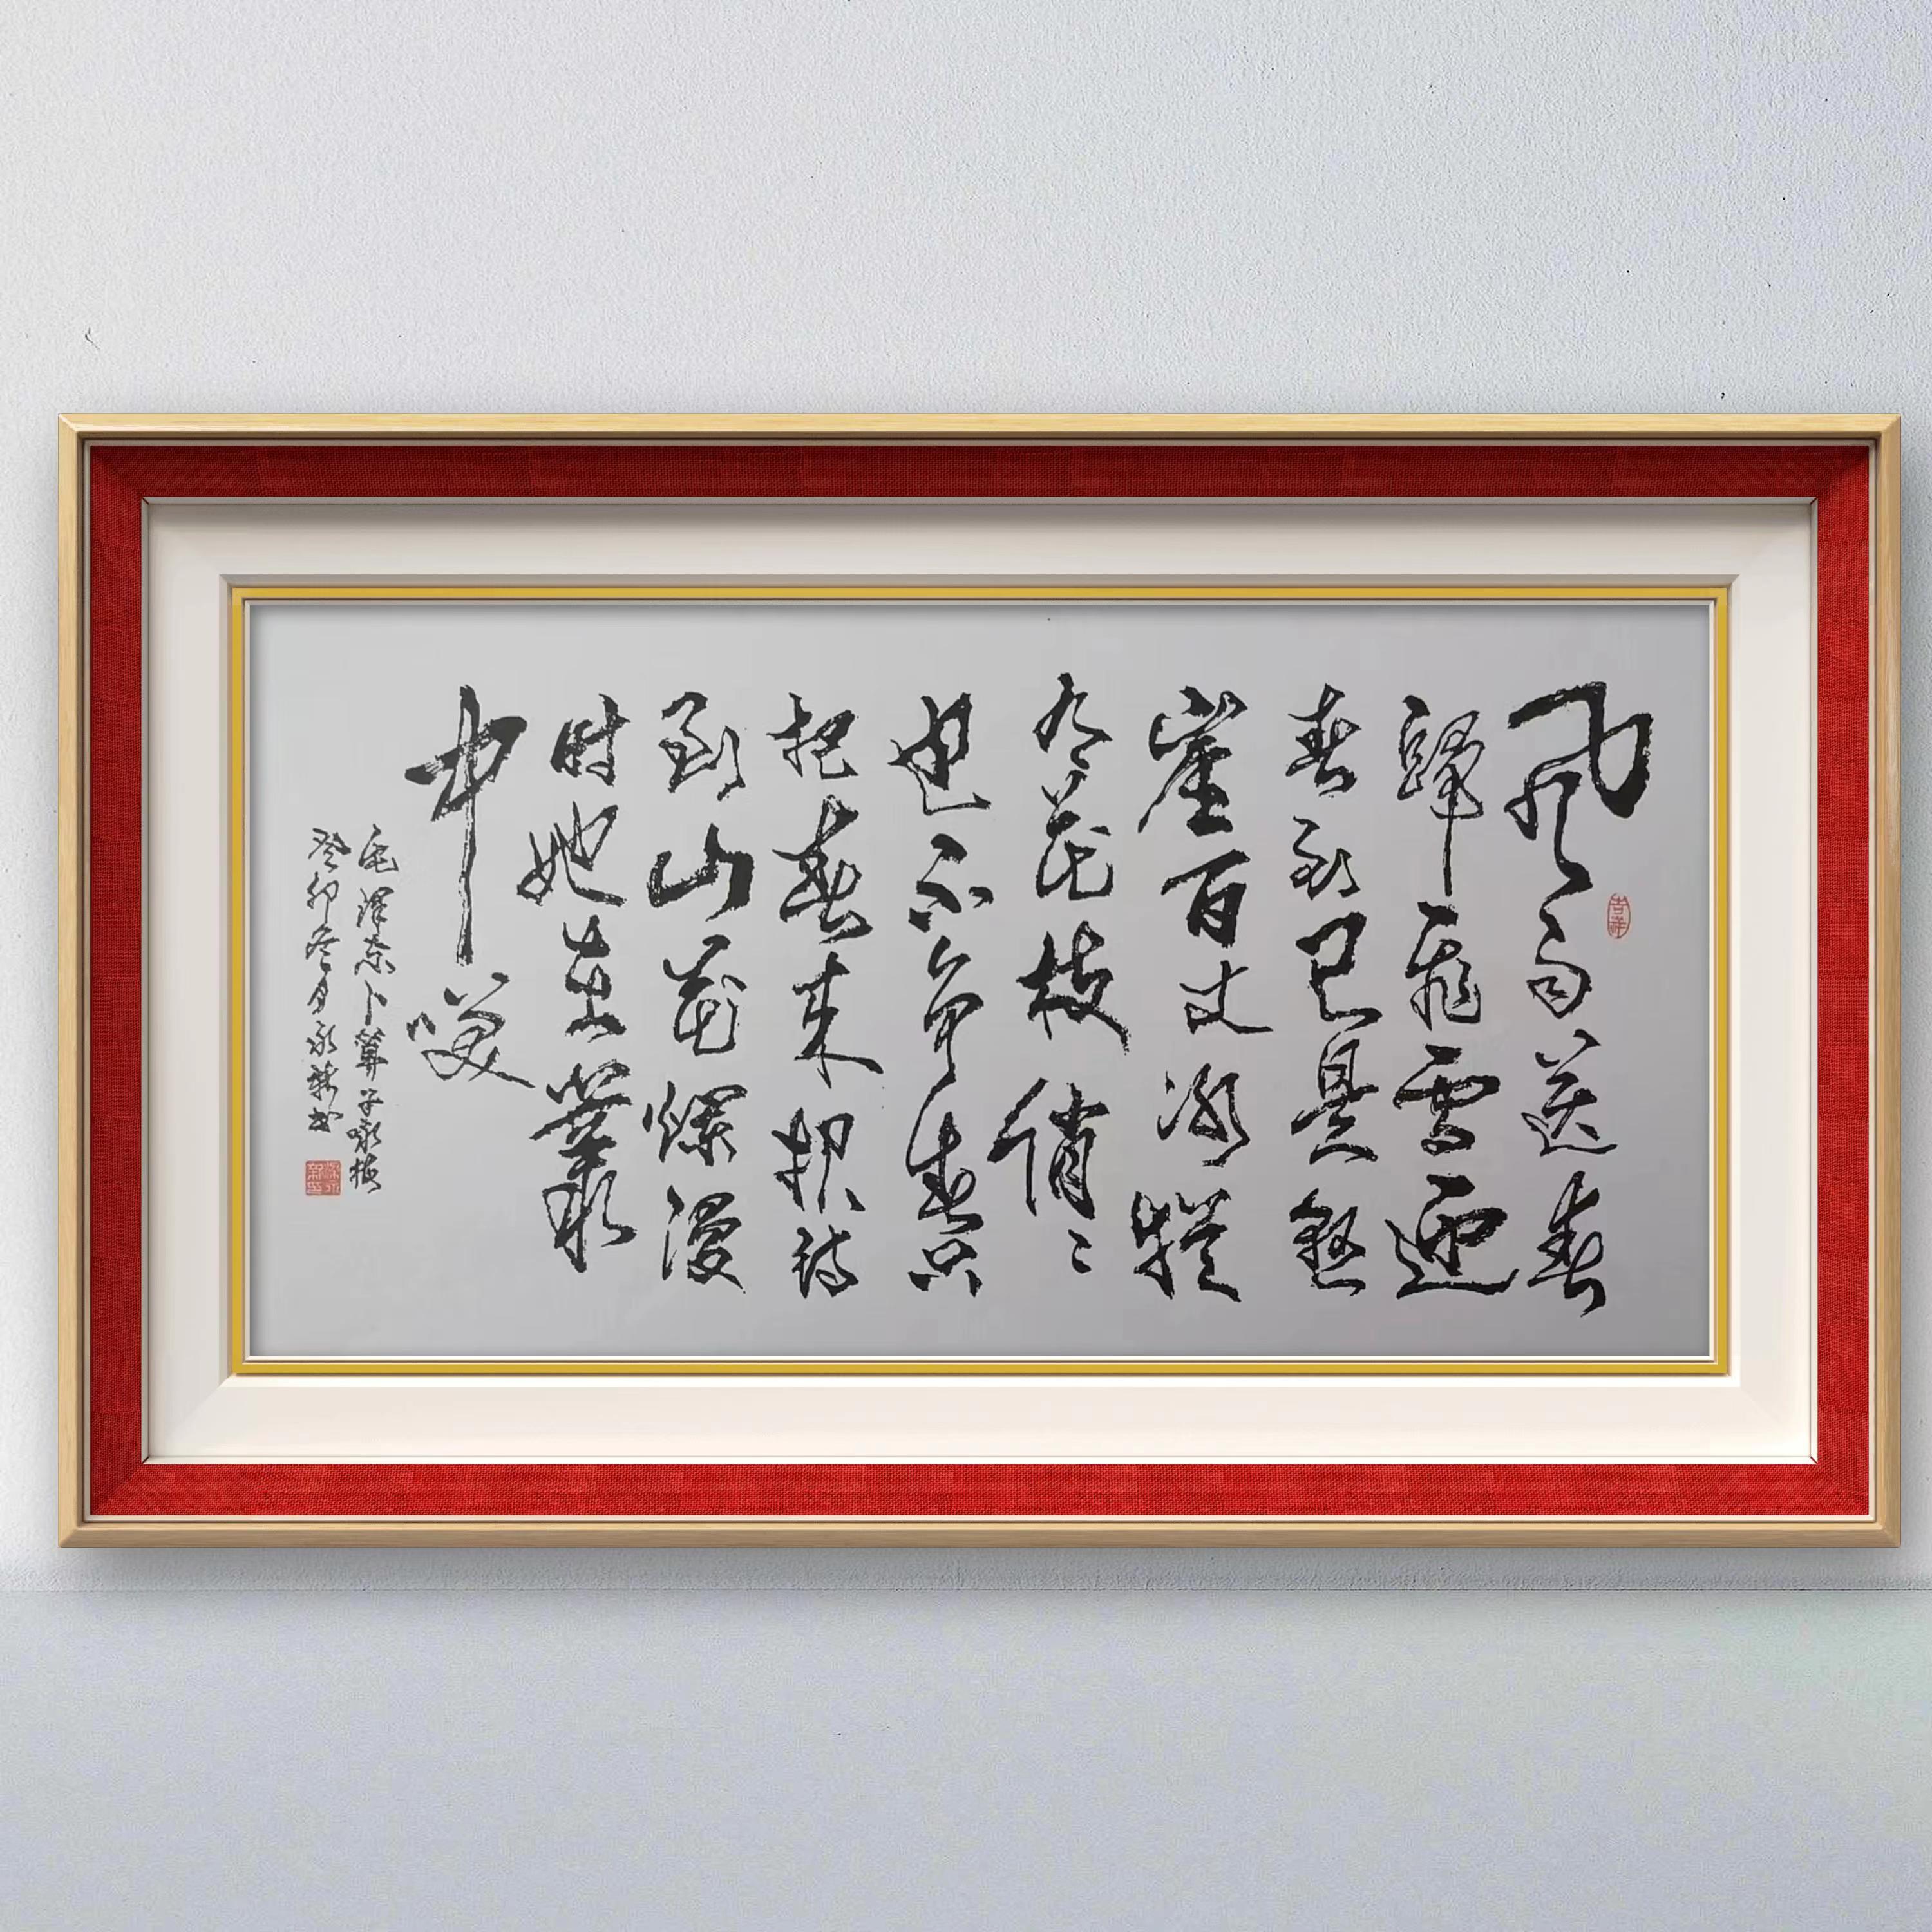 风雨送春
歸飛雪迎
春到已是懸
崖百丈冰猶
有花枝俏〻
也不争春只
把春来报待
到山花爛漫
时她在叢
中咲
毛澤东卜算子咏梅
癸卯冬月永新书
吉祥